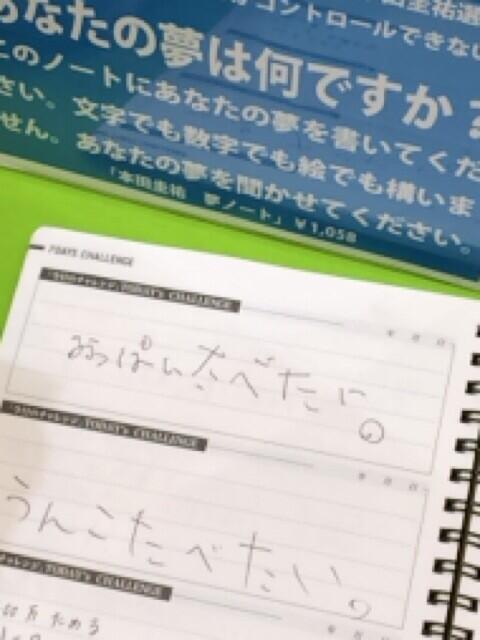 コントロールできない
あなたの夢は何ですか？
このノートにあなたの夢を書いてくだ
さい。文字でも数字でも絵でも構いま
せん。あなたの夢を聞かせてください。
「本田圭祐 夢ノート」￥1,058
7DAYS CHALLENGE
今日のチャレンジ/TODAY's CHALLENGE
年 月 日
おっぱいたべたい。
今日のチャレンジ/TODAY's CHALLENGE
年 月 日
うんこたべたい。
チャレンジ/TODAY's CHALLENGE
年 月 日
ためる